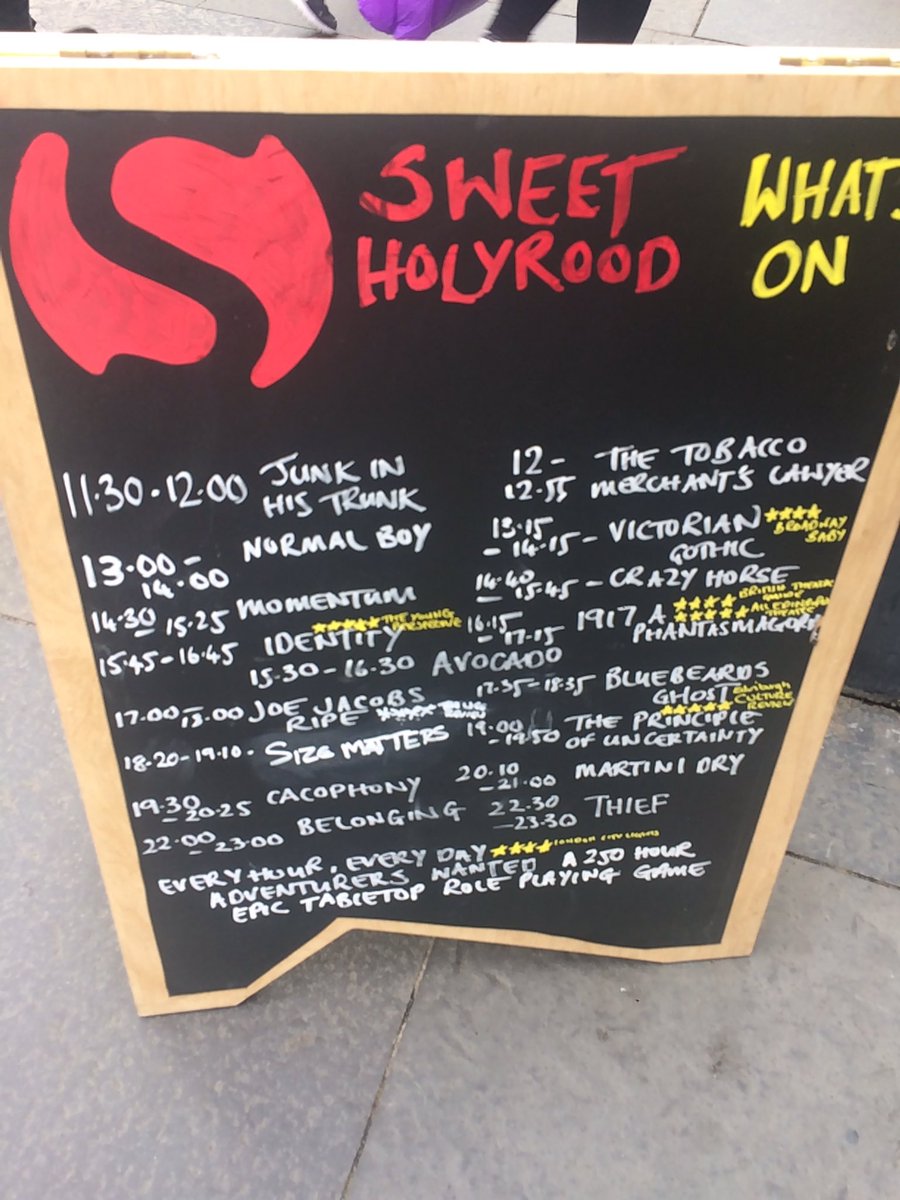 SWEET
HOLYROOD
WHAT'S
ON
11.30-12.00 JUNK IN
HIS TRUNK
13.00-
14.00 NORMAL BOY
14.30
- 15.25 MOMENTUM
15.45-16.45 IDENTITY ★★★★★ THE YOUNG
PERSPECTIVE
15.30-16.30 AVOCADO
17.00-18.00 JOE JACOBS
RIPE
18.20-19.10. SIZE MATTERS
19.30
- 20.25 CACOPHONY
22.00
- 23.00 BELONGING
12-
12.55 THE TOBACCO
MERCHANT'S LAWYER
13.15
- 14.15- VICTORIAN ★★★★ BROADWAY
BABY
GOTHIC
14.40
- 15.45 - CRAZY HORSE
16.15
- 17.15 1917, A ★★★★ BRITISH THEATRE
GUIDE
★★★★★ ALL EDINBURGH
THEATRE
PHANTASMAGORY
17.35-18.35 BLUEBEARDS
GHOST Edinburgh
CULTURE
REVIEW
★★★★★
19.00
-19.50 THE PRINCIPLE
OF UNCERTAINTY
20.10
-21.00 MARTINI DRY
22.30
-23.30 THIEF
EVERY HOUR, EVERY DAY ★★★★ LONDON CITY
ADVENTURERS WANTED A 250 HOUR
EPIC TABLETOP ROLE PLAYING GAME